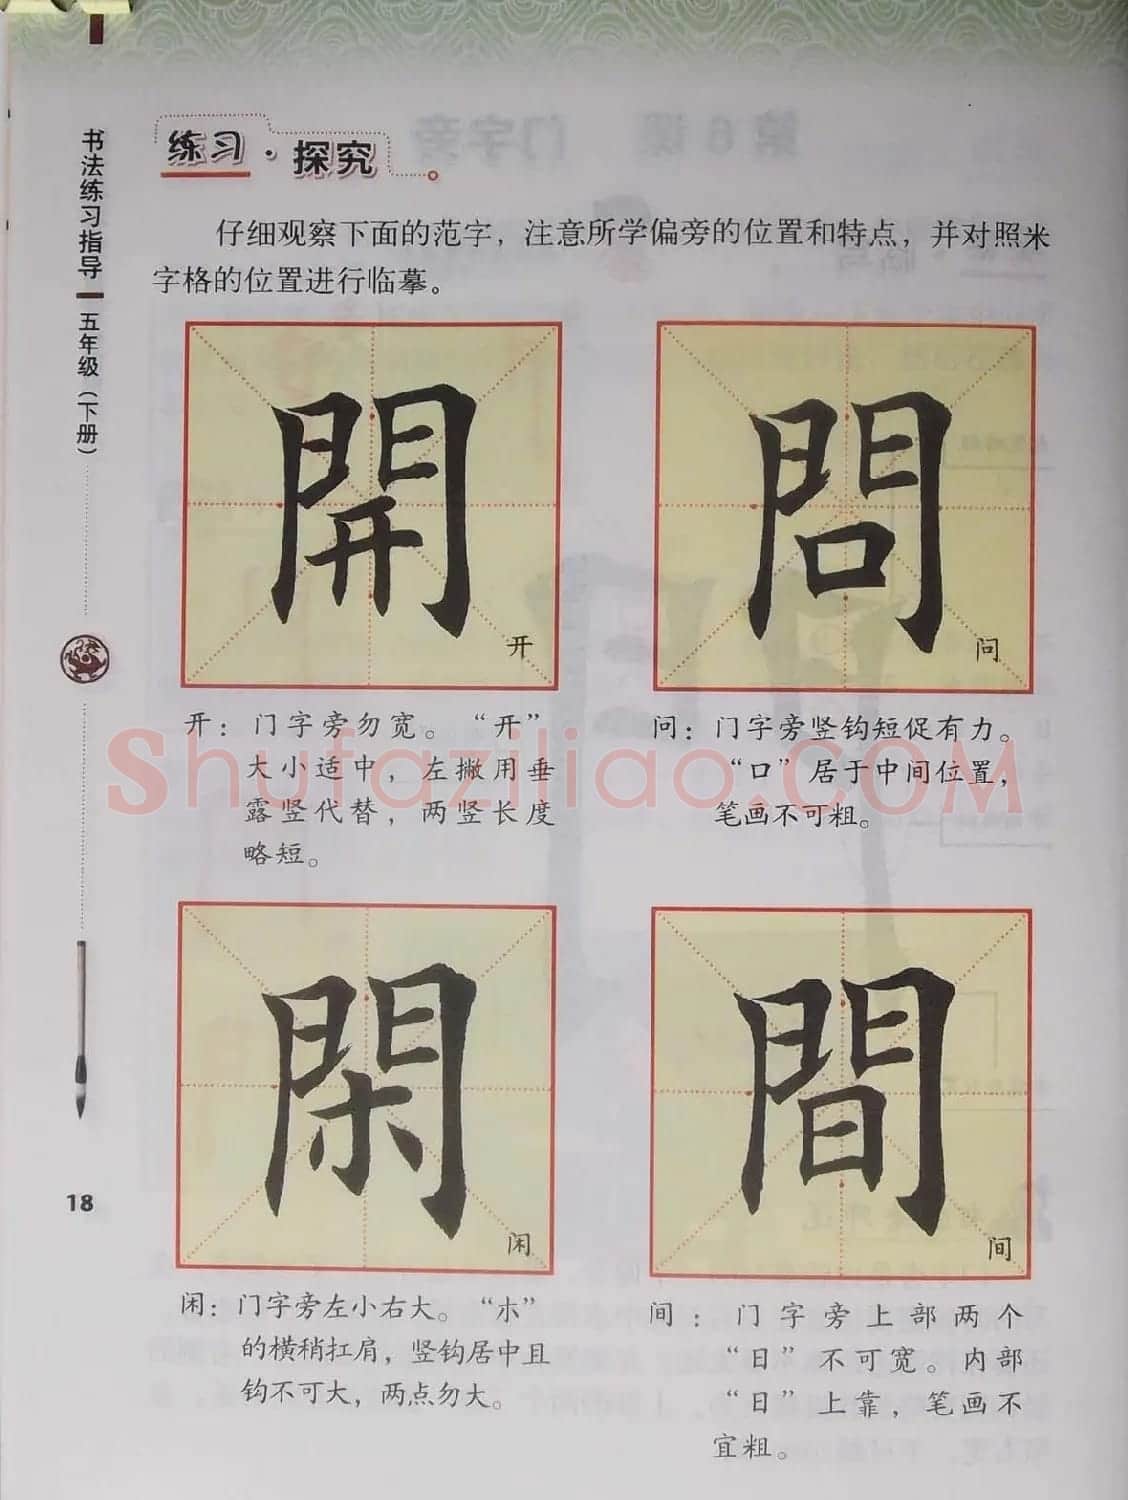 书法练习指导
五年级（下册）
18
练习·探究
仔细观察下面的范字，注意所学偏旁的位置和特点，并对照米
字格的位置进行临摹。
開
开
問
问
开：门字旁勿宽。“开”
大小适中，左撇用垂
露竖代替，两竖长度
略短。
问：门字旁竖钩短促有力。
“口”居于中间位置，
笔画不可粗。
Shufaziliao.COM
閑
闲
間
间
闲：门字旁左小右大。“木”
的横稍扛肩，竖钩居中且
钩不可大，两点勿大。
间：门字旁上部两个
“日”不可宽。内部
“日”上靠，笔画不
宜粗。